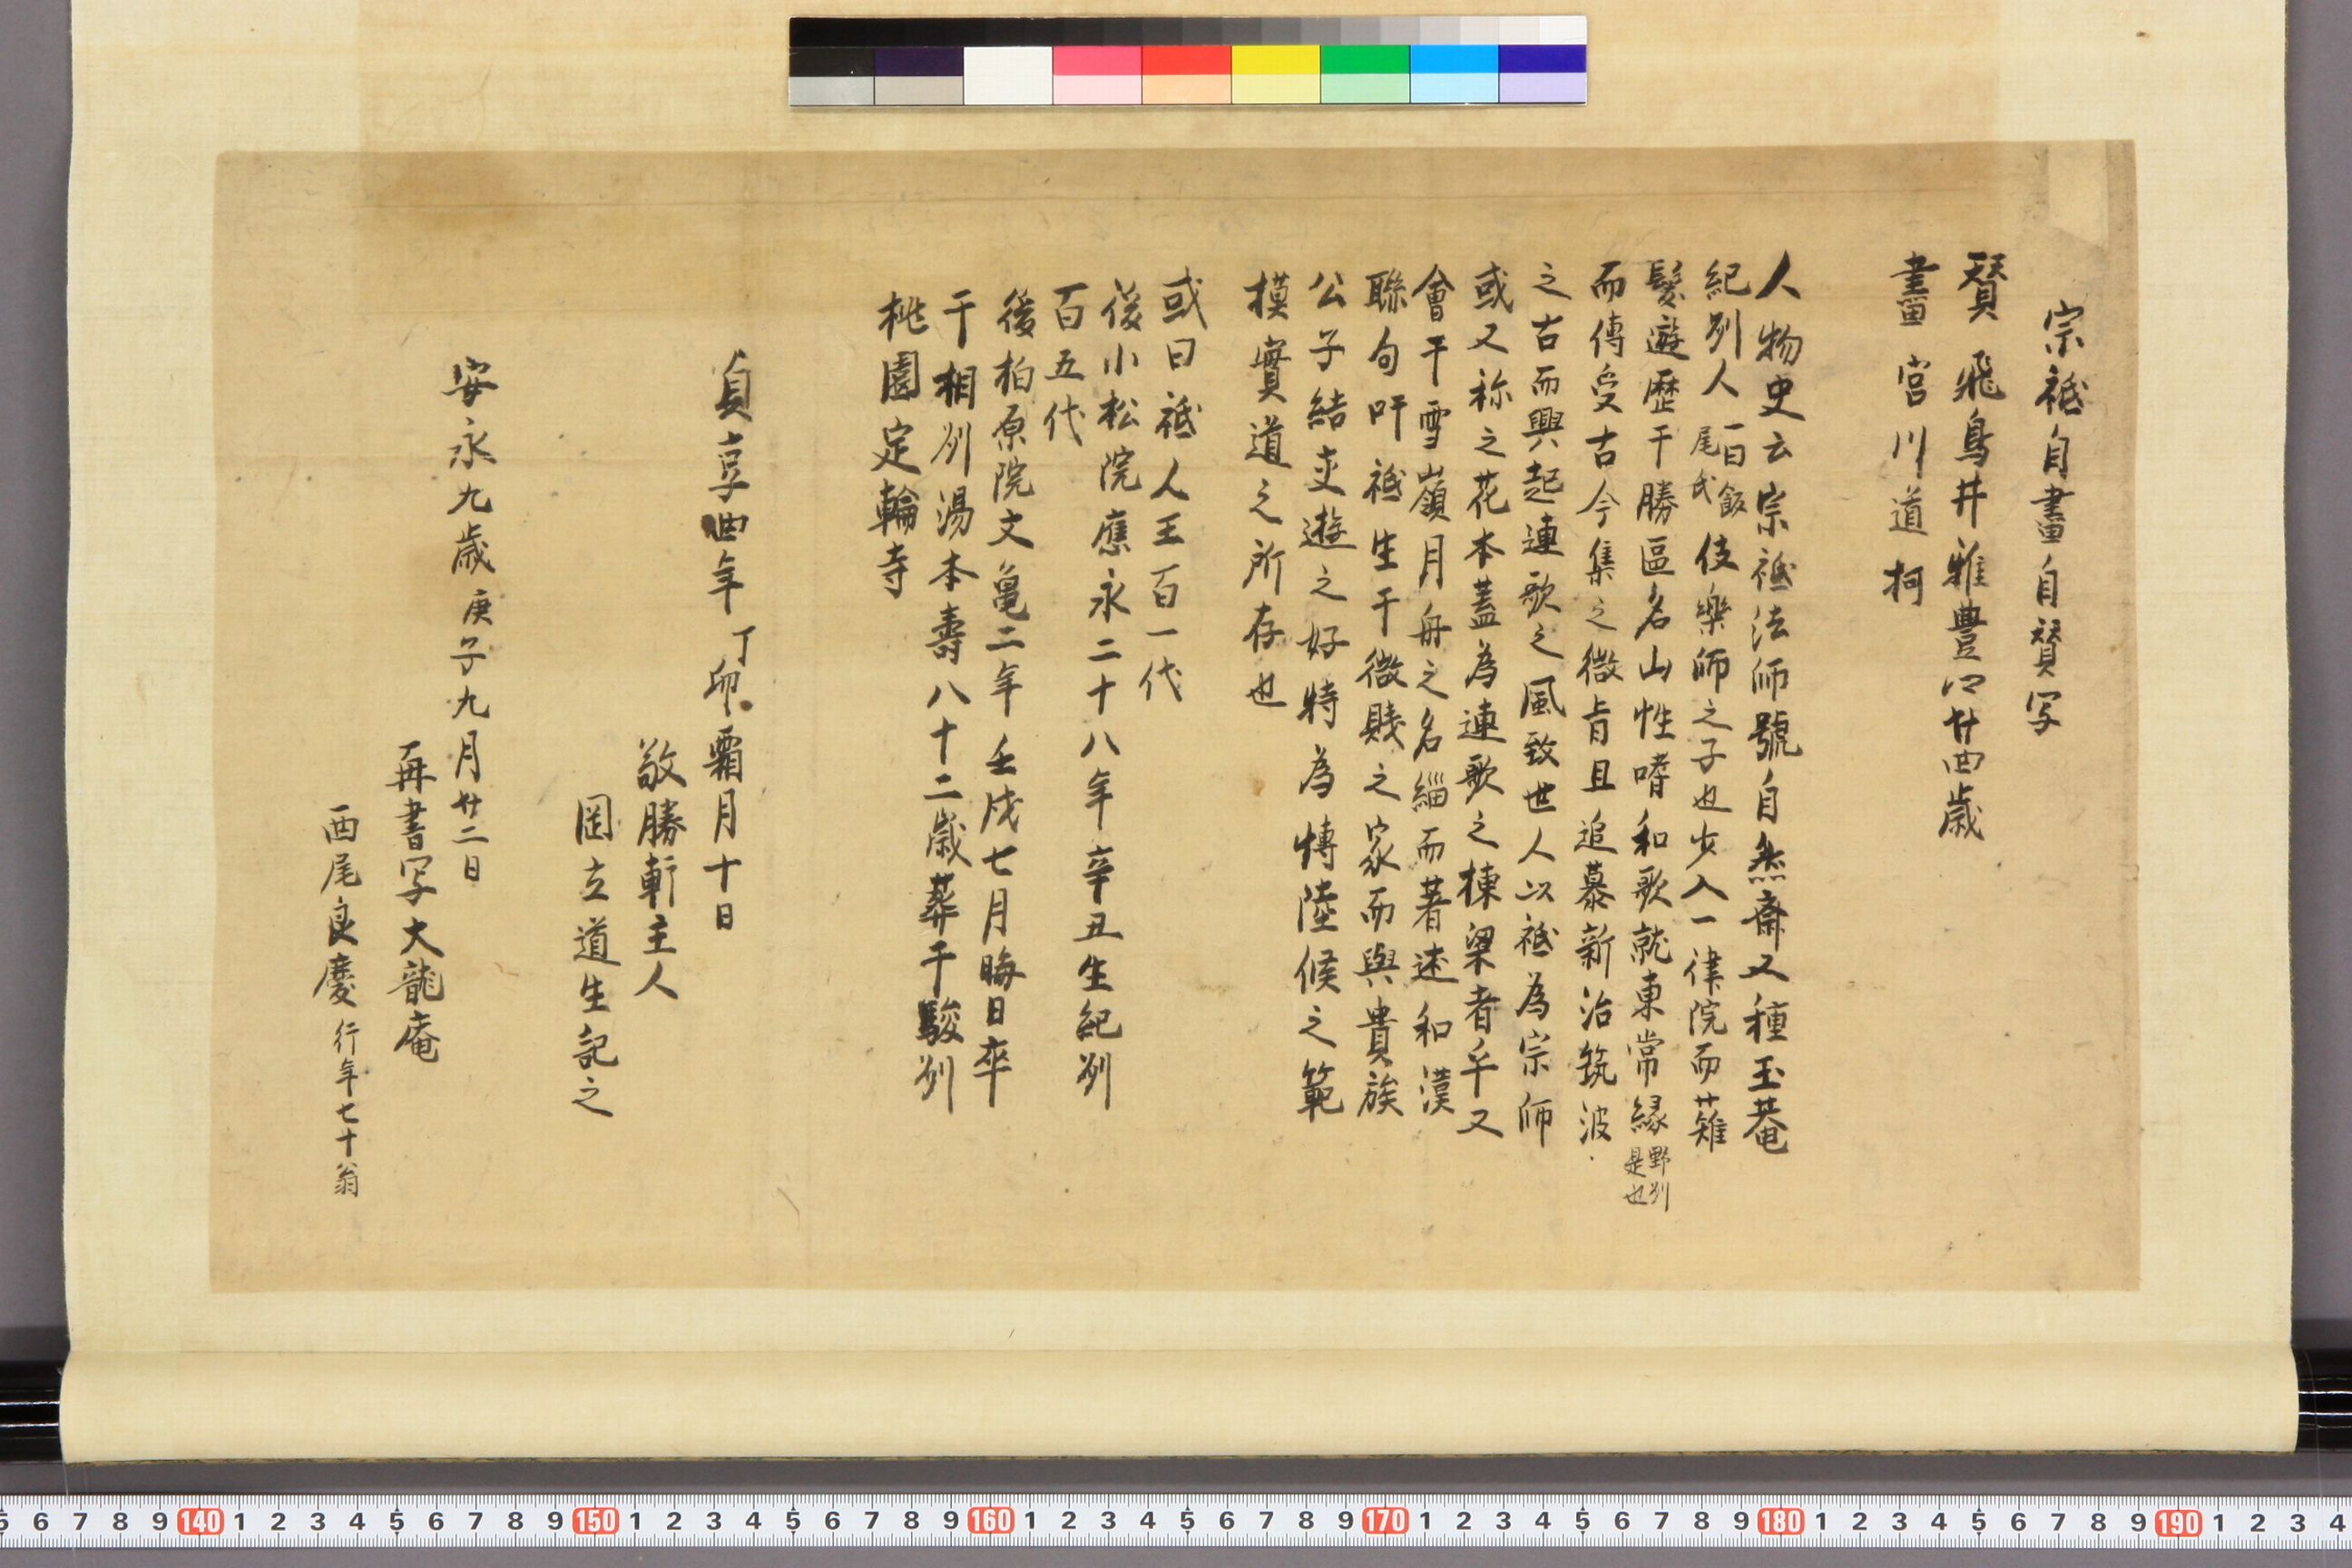 宗祇自畫自賛写
賛 飛鳥井雅豊卿廿四歳
畫 宮川道柯
人物史云宗祇法師號自然斎又種玉菴
紀列人一曰飯尾氏伎樂師之子也少入一律院而薙
髪遊歴于勝區名山性嗜和歌就東常縁野列是也
而傳受古今集之微旨且追慕新治筑波
之古而興起連歌之風致世人以祇為宗師
或又称之花本蓋為連歌之棟梁者乎又
會于雪嶺月舟之名緇而著述和漢
聯句吁祇生于微賤之家而與貴族
公子結交遊之好特為慱陸候之範
摸實道之所存也
或曰祇人王百一代
後小松院應永二十八年辛丑生紀列
百五代
後柏原院文亀二年壬戌七月晦日卒
于相列湯本壽八十二歳葬于駿列
桃園定輪寺
貞享四年丁卯霜月十日
敬勝軒主人
岡立道生記之
安永九歳庚子九月廿二日
再書写大龍庵
西尾良慶行年七十翁
6 7 8 9 140 1 2 3 4 5 6 7 8 9 150 1 2 3 4 5 6 7 8 9 160 1 2 3 4 5 6 7 8 9 170 1 2 3 4 5 6 7 8 9 180 1 2 3 4 5 6 7 8 9 190 1 2 3 4